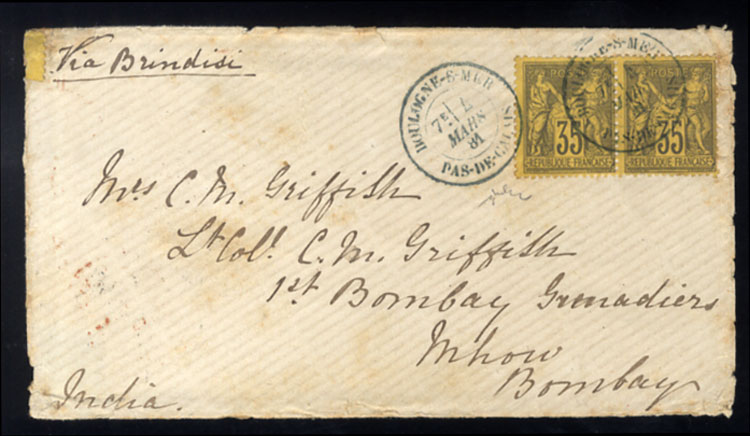 Via Brindisi
BOULOGNE-S-MER
7E
MARS
81
PAS-DE-CALAIS
POSTE
35
REPUBLIQUE FRANÇAISE
POSTE
35
REPUBLIQUE FRANÇAISE
Mrs C. M. Griffith
Lt Col. C. M. Griffith
1st Bombay Grenadiers
Mhow
Bombay
India.